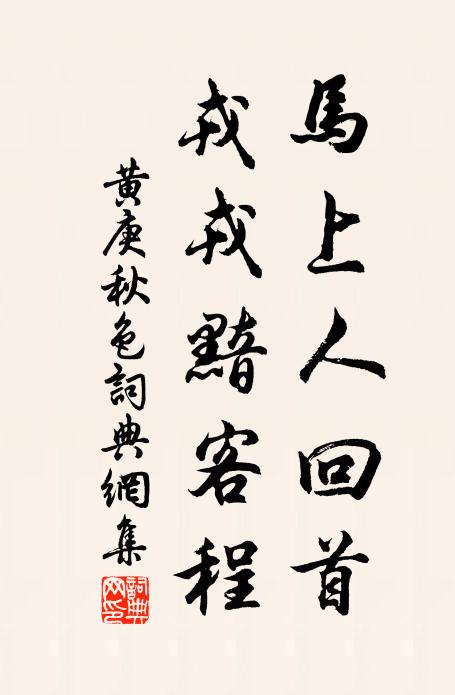 馬上人回首
戎戎黯客程
黃庚秋色詞典網集
詞典網印